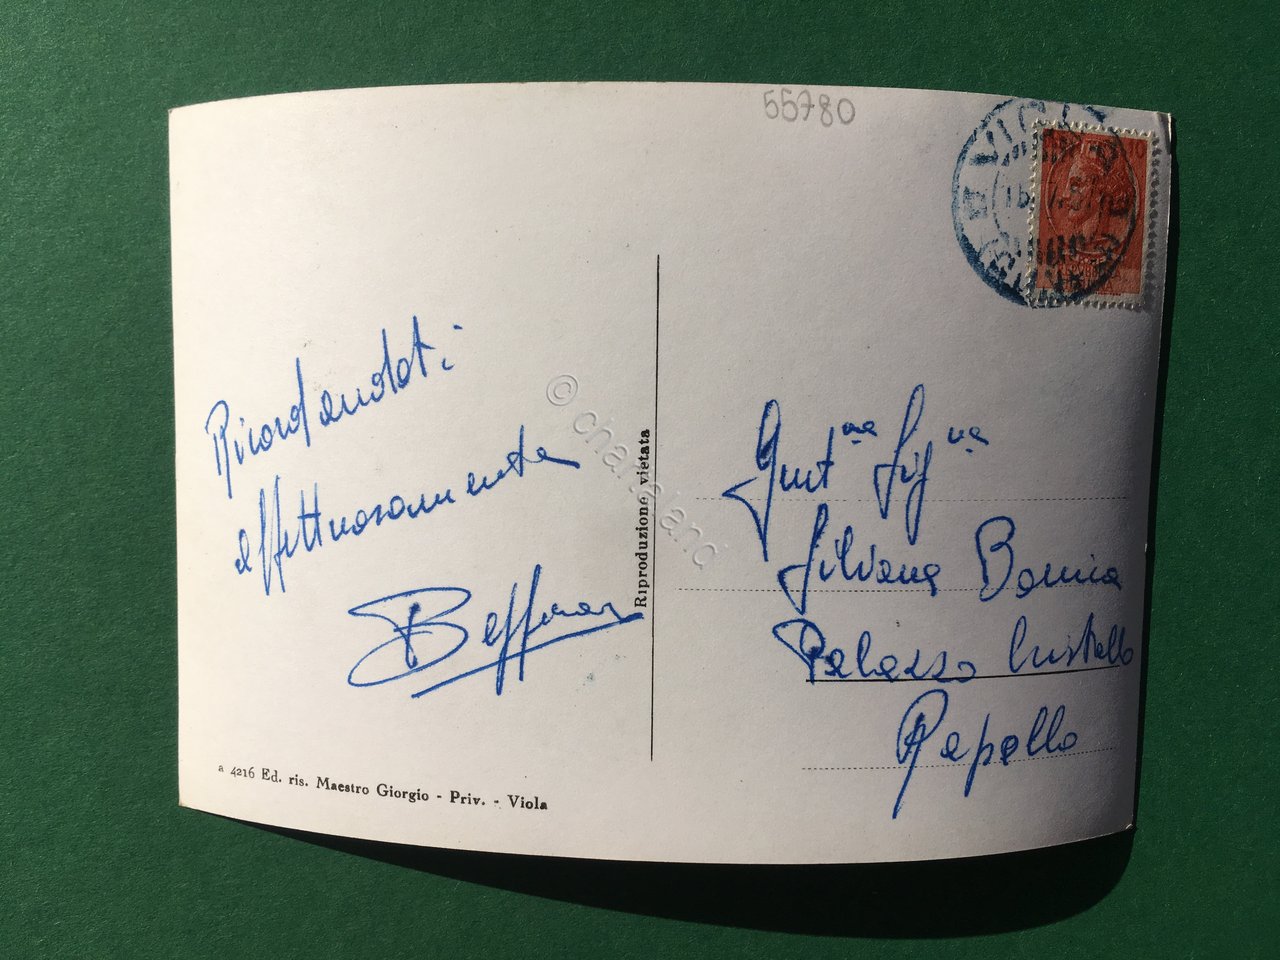 55780
Ricordandoti
affettuosamente
Gent.ma Sig.na
Silvana Bonica
Palazzo Cristallo
Rapallo
Riproduzione vietata
a 4216 Ed. ris. Maestro Giorgio - Priv. - Viola
© chartaland